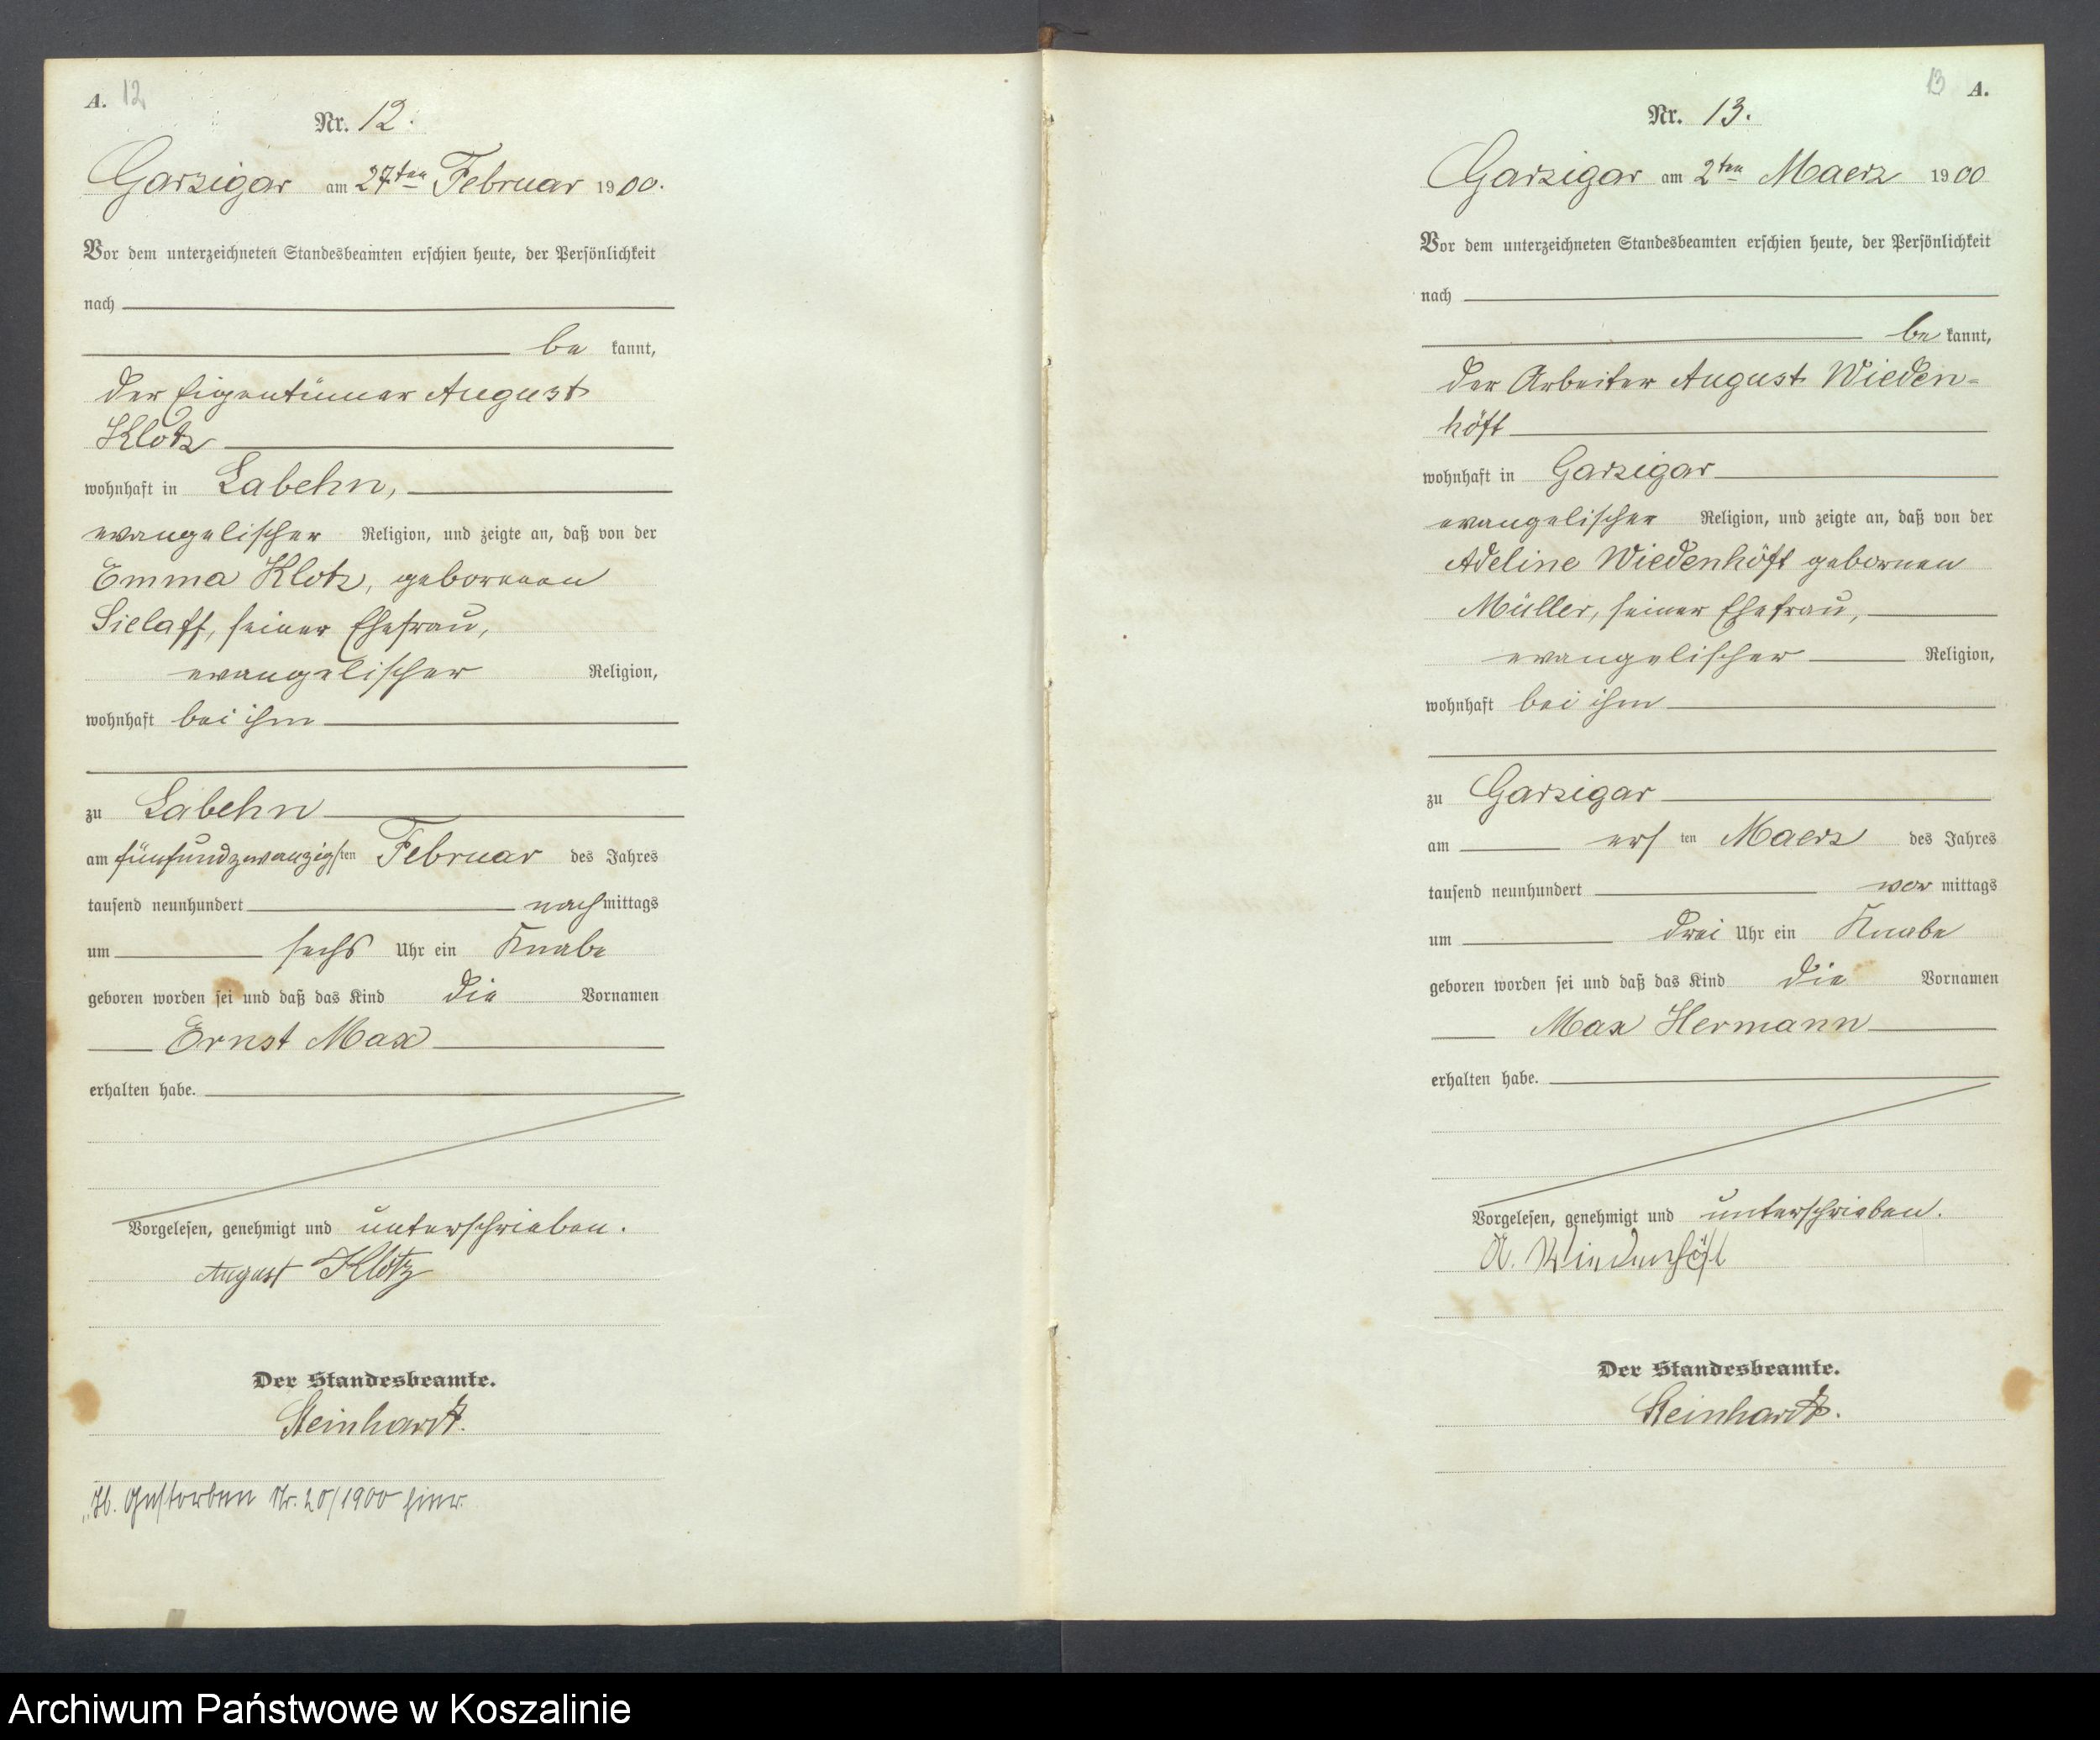 A. 12
Nr. 12.
Garzigar am 27ten Februar 1900.
Vor dem unterzeichneten Standesbeamten erschien heute, der Persönlichkeit
nach
be kannt,
der Eigentümer August
Klotz
wohnhaft in Labehn,
evangelischer Religion, und zeigte an, daß von der
Emma Klotz, geborenen
Sielaff, seiner Ehefrau,
evangelischer Religion,
wohnhaft bei ihm
zu Labehn
am fünfundzwanzigsten Februar des Jahres
tausend neunhundert nachmittags
um sechs Uhr ein Knabe
geboren worden sei und daß das Kind die Vornamen
Ernst Max
erhalten habe.
Vorgelesen, genehmigt und unterschrieben.
August Klotz
Der Standesbeamte.
Steinhardt.
Gestorben Nr. 20/1900 hier.
13 A.
Nr. 13.
Garzigar am 2ten Maerz 1900
Vor dem unterzeichneten Standesbeamten erschien heute, der Persönlichkeit
nach
be kannt,
der Arbeiter August Wieden-
höft
wohnhaft in Garzigar
evangelischer Religion, und zeigte an, daß von der
Adeline Wiedenhöft gebornen
Müller, seiner Ehefrau,
evangelischer Religion,
wohnhaft bei ihm
zu Garzigar
am ersten Maerz des Jahres
tausend neunhundert vor mittags
um drei Uhr ein Knabe
geboren worden sei und daß das Kind die Vornamen
Max Hermann
erhalten habe.
Vorgelesen, genehmigt und unterschrieben.
A. Wiedenhöft
Der Standesbeamte.
Steinhardt.
Archiwum Państwowe w Koszalinie